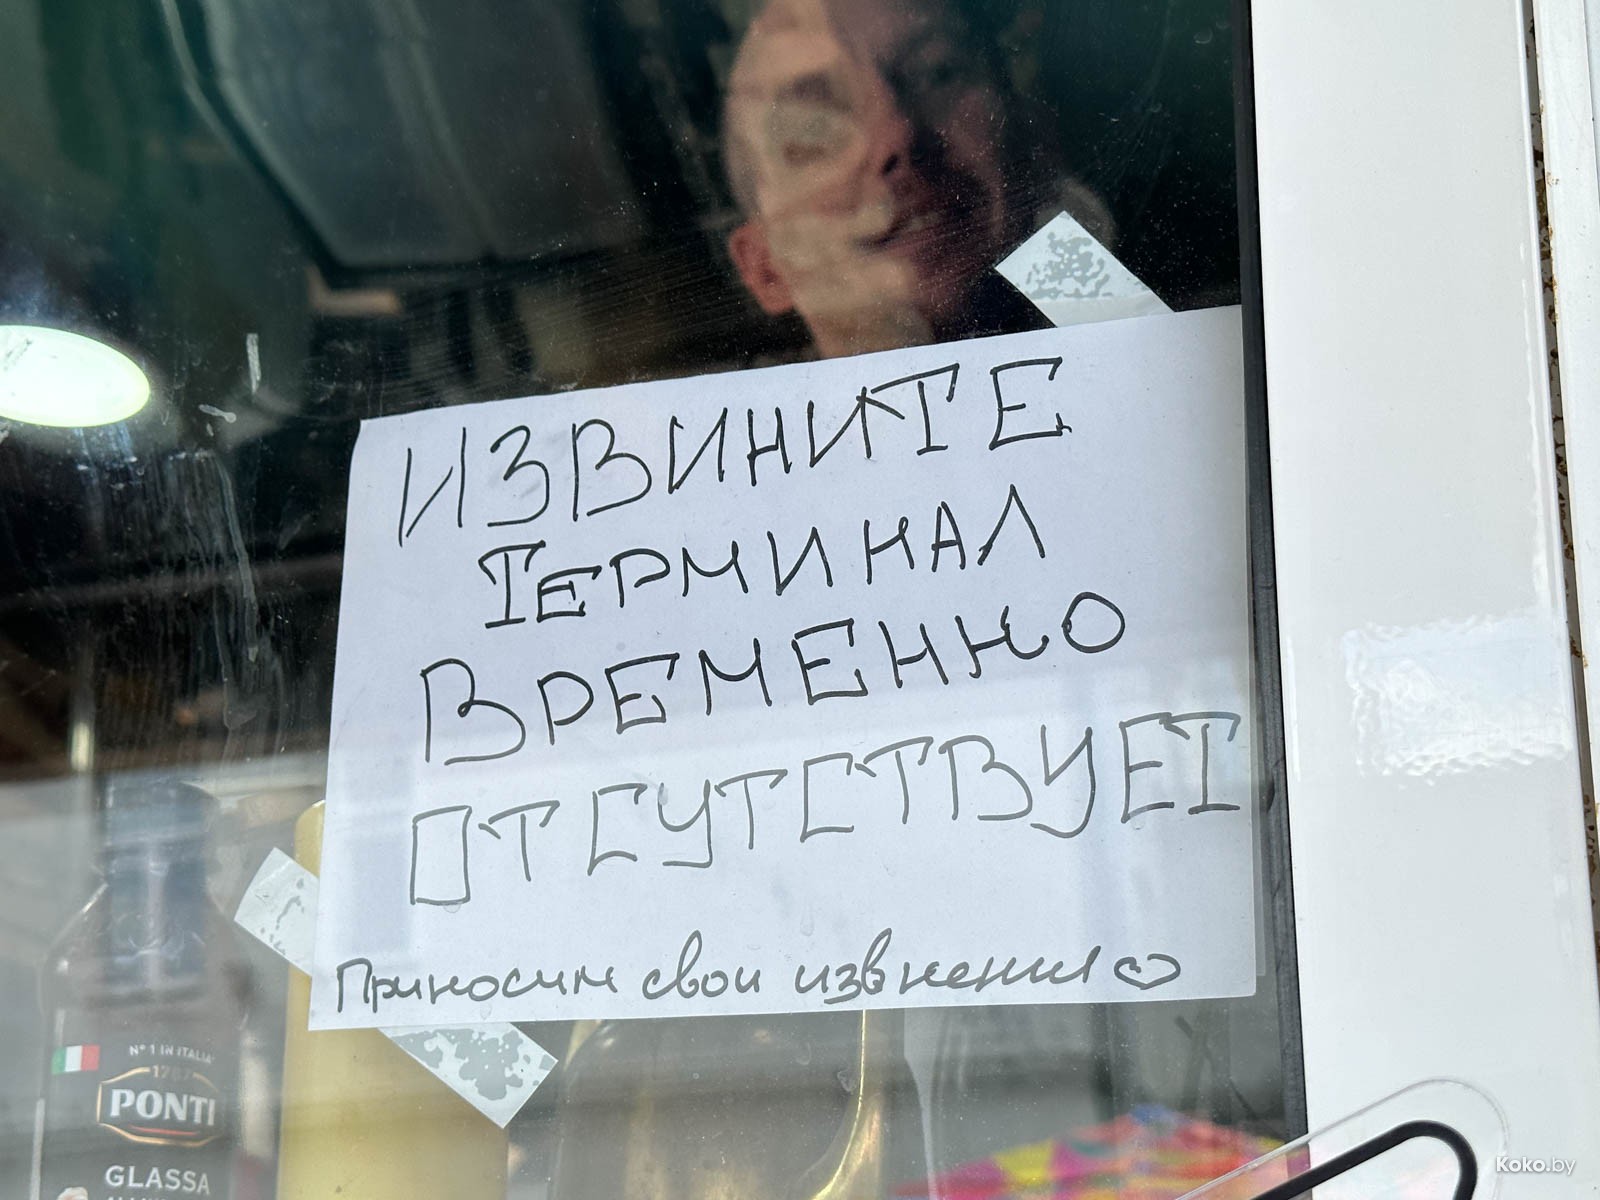 ИЗВИНИТЕ
ТЕРМИНАЛ
ВРЕМЕННО
ОТСУТСТВУЕТ
Приносим свои извенения
Nº 1 IN ITALIA
1787
PONTI
GLASSA
Koko.by